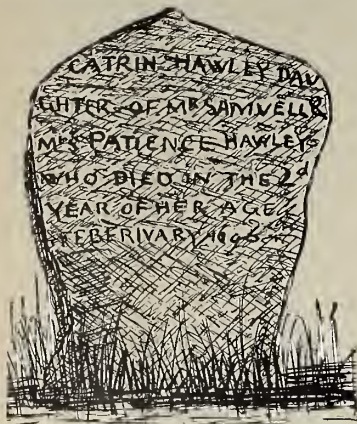 CATRIN HAWLEY DAV
GHTER OF MR SAMVELL &
MRS PATIENCE HAWLEY
WHO DIED IN THE 2d
YEAR OF HER AGE
FEBERIVARY